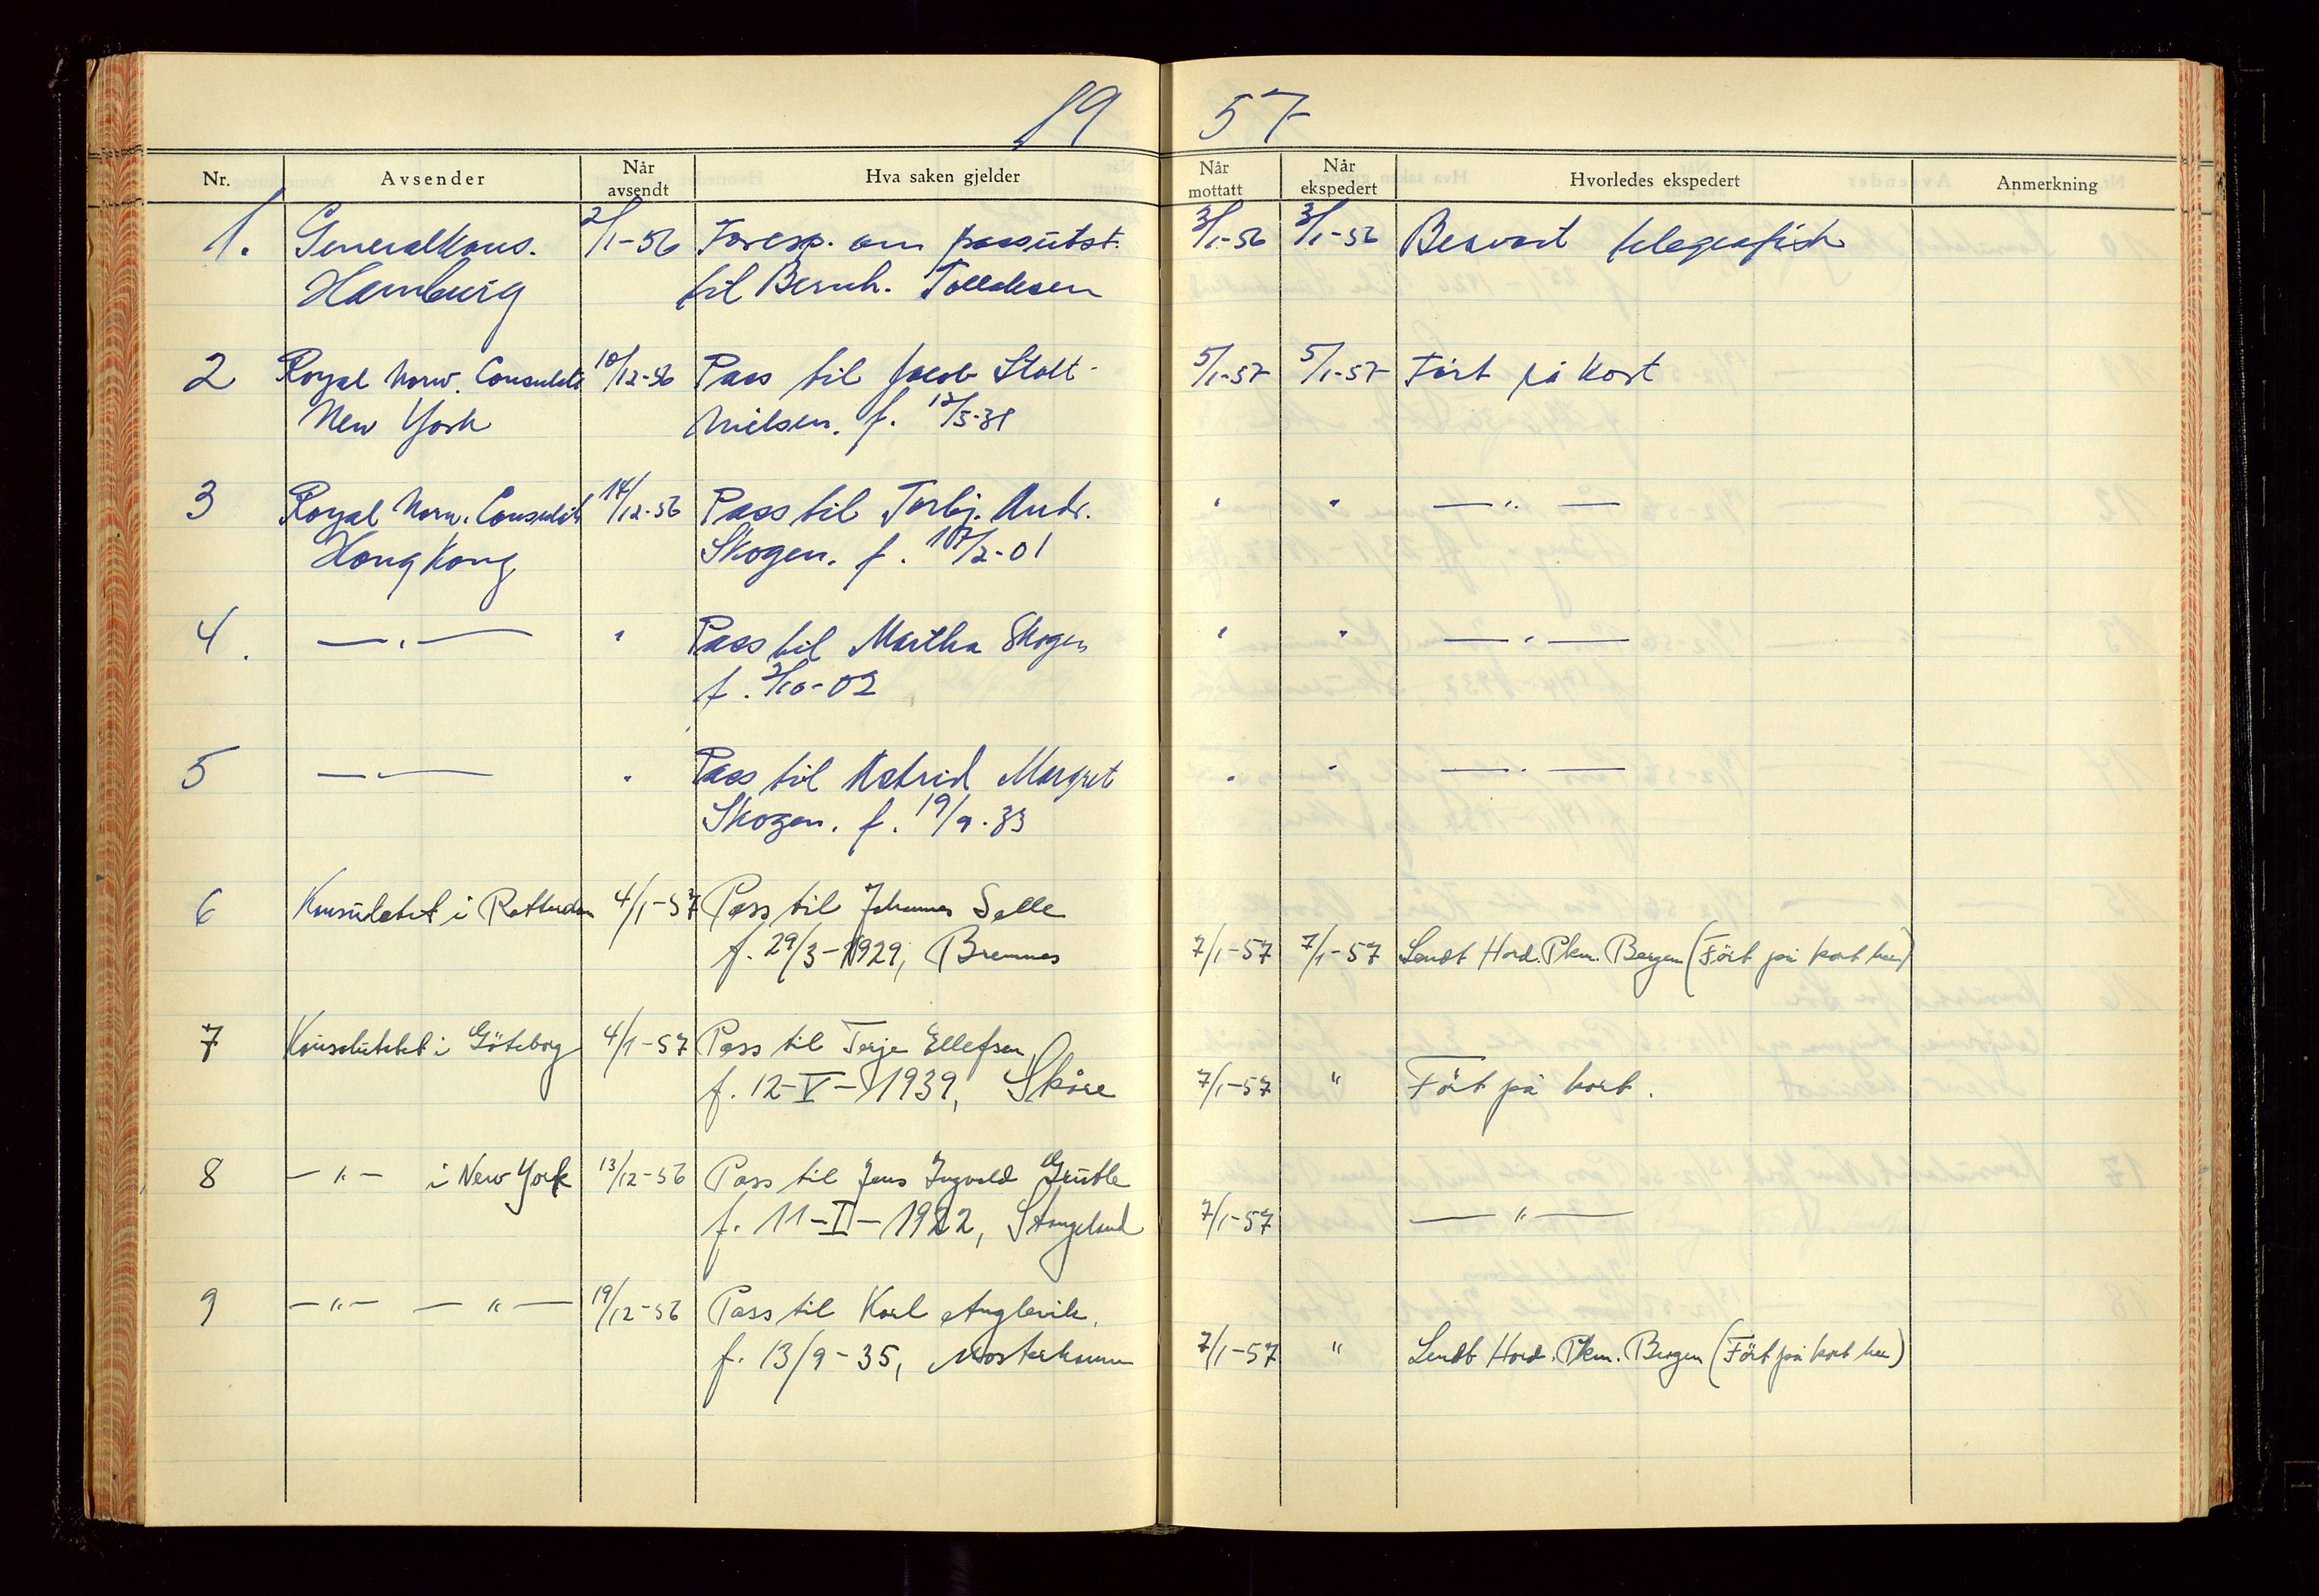 19 57
Nr. Avsender Når avsendt Hva saken gjelder Når mottatt Når ekspedert Hvorledes ekspedert Anmerkning
1. Generalkons. 2/1-56 Foresp. om passutst. 3/1-56 3/1-56 Besvart telegrafisk
Hamburg til Bernh. Tollaksen
2 Royal Norw. Consulate 10/12-56 Pass til Jacob Stolt- 5/1-57 5/1-57 Ført på kort
New York Nielsen. f. 12/5-31
3 Royal Norw. Consulate 14/12-56 Pass til Torbj. Andr. " " — " —
Hong Kong Skogen. f. 10/2-01
4. — " — " Pass til Martha Skogen " " — " —
f. 2/10-02
5 — " — " Pass til Astrid Margret " " — " —
Skogen. f. 19/9-33
6 Konsulatet i Rotterdam 4/1-57 Pass til Johannes Selle
f. 29/3-1929, Bremnes 7/1-57 7/1-57 Sendt Hord. Pkm. Bergen (Ført på kort her)
7 Konsulatet i Göteborg 4/1-57 Pass til Terje Ellefsen
f. 12-V-1939, Skåre 7/1-57 " Ført på kort.
8 — " — i New York 13/12-56 Pass til Jens Ingvald Grutle
f. 11-I-1922, Stangeland 7/1-57 — " —
9 — " — — " — 19/12-56 Pass til Karl
f. 13/9-35, Mosterhamn 7/1-57 " Sendt Hord. Pkm. Bergen (Ført på kort her)